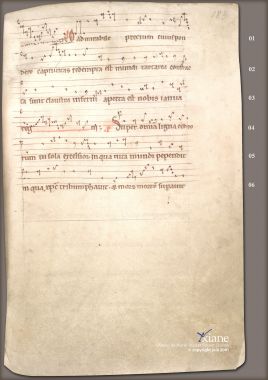 O admirabile precium cuius pon
dere captiuitas redempta est mundi tartarea confrac
ta sunt claustra inferni aperta est nobis ianua
regni. Super omnia ligna cedro
rum tu sola excelsior in qua uita mundi pependit
in qua xpc triumphauit & mors mortem superauit
01
02
03
04
05
06
xiane
© copyright